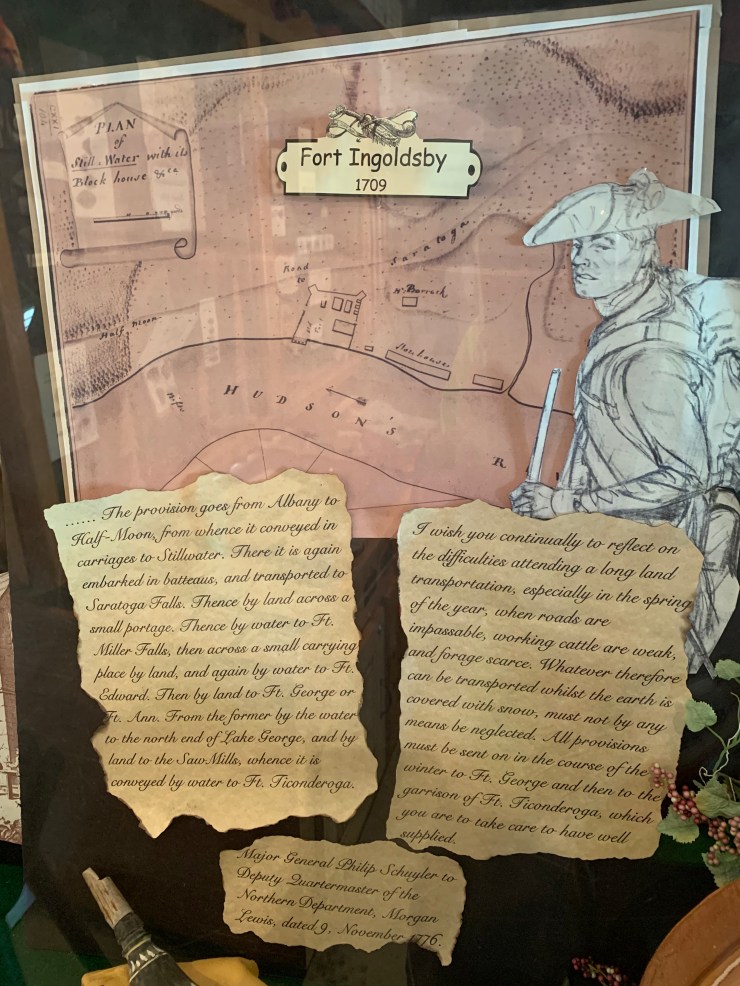 PLAN
of
Still-Water with its
Block house &ca
Fort Ingoldsby
1709
Saratoga
Road
to
Nº Barrack
Half moon
Storehouses
HUDSON'S
R
...... The provision goes from Albany to
Half-Moon, from whence it conveyed in
carriages to Stillwater. There it is again
embarked in batteaus, and transported to
Saratoga Falls. Thence by land across a
small portage. Thence by water to Ft.
Miller Falls, then across a small carrying
place by land, and again by water to Ft.
Edward. Then by land to Ft. George or
Ft. Ann. From the former by the water
to the north end of Lake George, and by
land to the SawMills, whence it is
conveyed by water to Ft. Ticonderoga.
I wish you continually to reflect on
the difficulties attending a long land
transportation, especially in the spring
of the year, when roads are
impassable, working cattle are weak,
and forage scarce. Whatever therefore
can be transported whilst the earth is
covered with snow, must not by any
means be neglected. All provisions
must be sent on in the course of the
winter to Ft. George and then to the
garrison of Ft. Ticonderoga, which
you are to take care to have well
supplied.
Major General Philip Schuyler to
Deputy Quartermaster of the
Northern Department, Morgan
Lewis, dated 9, November 1776.